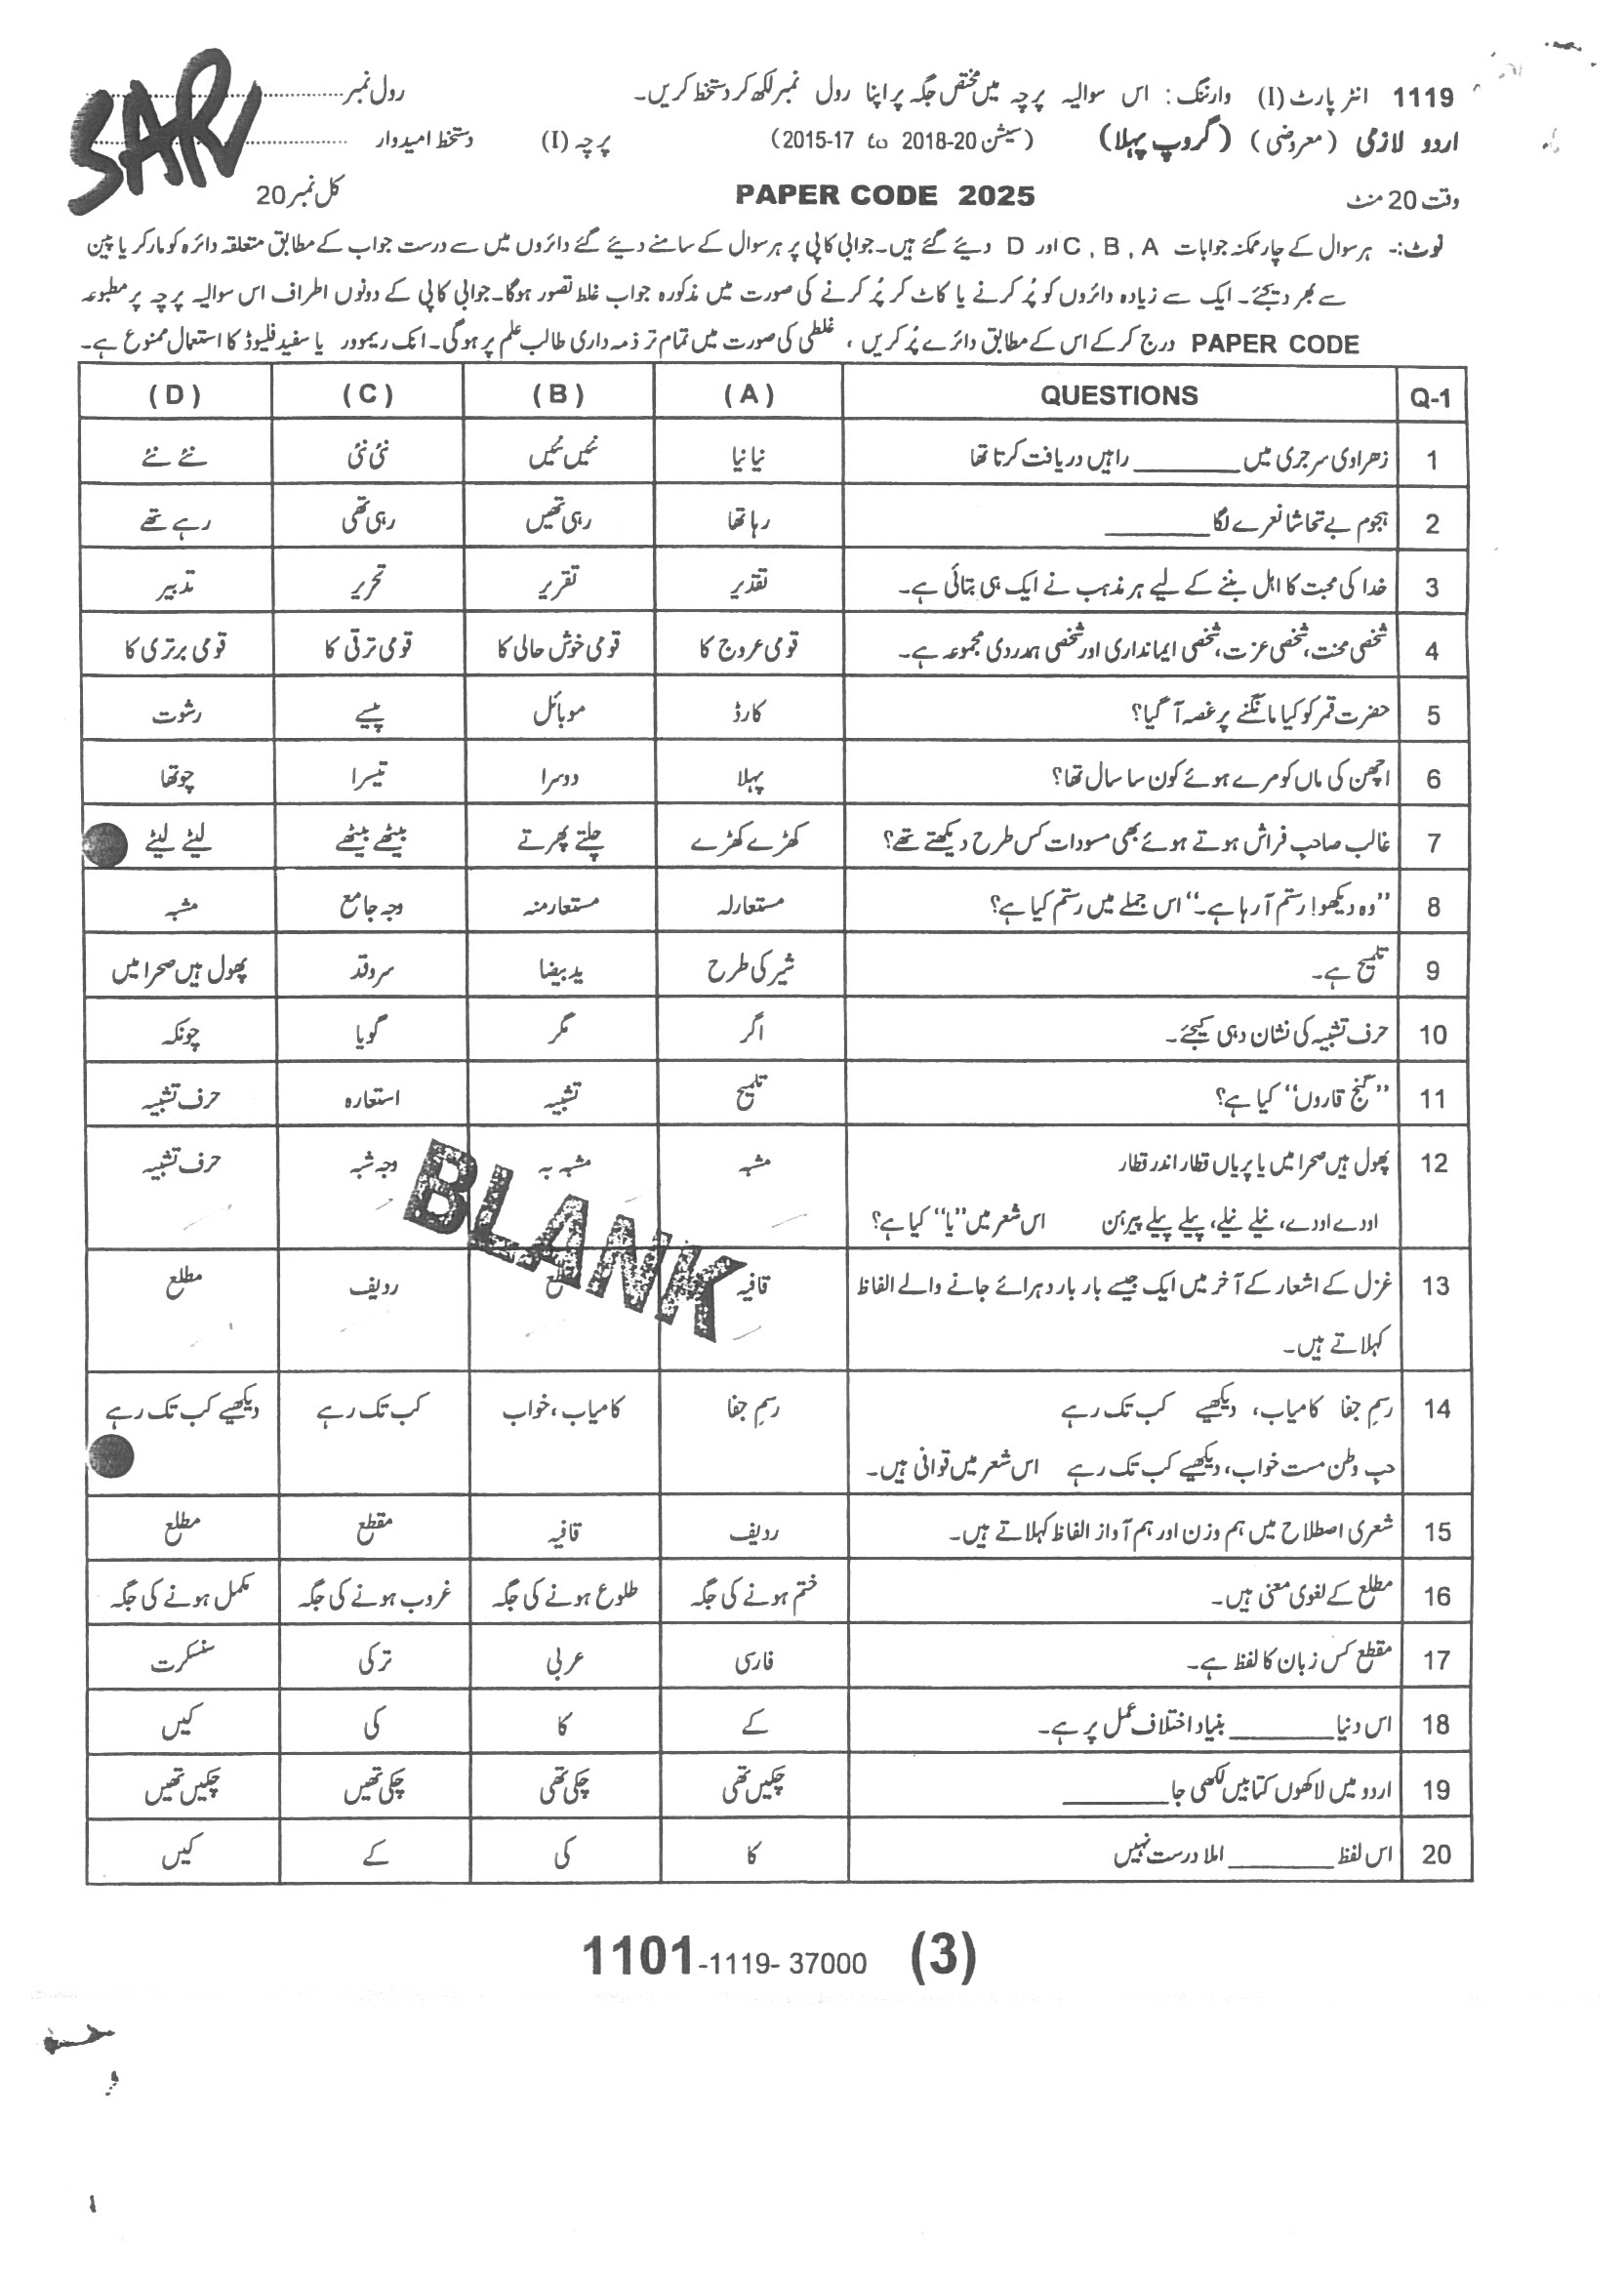 1119 انٹر پارٹ (I) وارننگ: اس سوالیہ پرچہ میں مختص جگہ پر اپنا رول نمبر لکھ کر دستخط کریں۔ رول نمبر
اردو لازمی (معروضی) (گروپ پہلا) (سیشن 2015-17 to 2018-20) پرچہ (I) دستخط امیدوار
SAR
وقت 20 منٹ PAPER CODE 2025 کل نمبر 20
نوٹ:- ہر سوال کے چار ممکنہ جوابات C , B , A اور D دیئے گئے ہیں۔ جوابی کاپی پر ہر سوال کے سامنے دیئے گئے دائروں میں سے درست جواب کے مطابق متعلقہ دائرہ کو مارکر یا پین
سے بھر دیجئے۔ ایک سے زیادہ دائروں کو پُر کرنے یا کاٹ کر پُر کرنے کی صورت میں مذکورہ جواب غلط تصور ہوگا۔ جوابی کاپی کے دونوں اطراف اس سوالیہ پرچہ پر مطبوعہ
PAPER CODE درج کر کے اس کے مطابق دائرے پُر کریں ، غلطی کی صورت میں تمام تر ذمہ داری طالب علم پر ہوگی۔ انک ریموور یا سفید فلیوڈ کا استعمال ممنوع ہے۔
Q-1 QUESTIONS (A) (B) (C) (D)
1 زھراوی سرجری میں ________ راہیں دریافت کرتا تھا نیا نیا نئیں نئیں نئی نئی نئے نئے
2 ہجوم بے تحاشا نعرے لگا ________ رہا تھا رہی تھیں رہی تھی رہے تھے
3 خدا کی محبت کا اہل بننے کے لیے ہر مذہب نے ایک ہی بتائی ہے۔ تقدیر تقریر تحریر تدبیر
4 شخصی محنت، شخصی عزت، شخصی ایمانداری اور شخصی ہمدردی مجموعہ ہے۔ قومی عروج کا قومی خوش حالی کا قومی ترقی کا قومی برتری کا
5 حضرت قمر کو کیا مانگنے پر غصہ آ گیا؟ کارڈ موبائل پیسے رشوت
6 اچھن کی ماں کو مرے ہوئے کون سا سال تھا؟ پہلا دوسرا تیسرا چوتھا
7 غالب صاحبِ فراش ہوتے ہوئے بھی مسودات کس طرح دیکھتے تھے؟ کھڑے کھڑے چلتے پھرتے بیٹھے بیٹھے لیٹے لیٹے
8 ”وہ دیکھو! رستم آ رہا ہے۔“ اس جملے میں رستم کیا ہے؟ مستعارلہ مستعارمنہ وجہ جامع مشبہ
9 تلمیح ہے۔ شیر کی طرح یدِبیضا سروقد پھول ہیں صحرا میں
10 حرف تشبیہ کی نشان دہی کیجئے۔ اگر مگر گویا چونکہ
11 ”گنج قاروں“ کیا ہے؟ تلمیح تشبیہ استعارہ حرف تشبیہ
12 پھول ہیں صحرا میں یا پریاں قطار اندر قطار مشبہ مشبہ بہ وجہ شبہ حرف تشبیہ
اودے اودے، نیلے نیلے، پیلے پیلے پیرہن اس شعر میں ”یا“ کیا ہے؟
BLANK
13 غزل کے اشعار کے آخر میں ایک جیسے بار بار دہرائے جانے والے الفاظ قافیہ ردیف مطلع
کہلاتے ہیں۔
14 رسمِ جفا کامیاب، دیکھیے کب تک رہے رسمِ جفا کامیاب، خواب کب تک رہے دیکھیے کب تک رہے
حبِ وطن مست خواب، دیکھیے کب تک رہے اس شعر میں قوافی ہیں۔
15 شعری اصطلاح میں ہم وزن اور ہم آواز الفاظ کہلاتے ہیں۔ ردیف قافیہ مقطع مطلع
16 مطلع کے لغوی معنی ہیں۔ ختم ہونے کی جگہ طلوع ہونے کی جگہ غروب ہونے کی جگہ مکمل ہونے کی جگہ
17 مقطع کس زبان کا لفظ ہے۔ فارسی عربی ترکی سنسکرت
18 اس دنیا ________ بنیاد اختلاف عمل پر ہے۔ کے کا کی کیں
19 اردو میں لاکھوں کتابیں لکھی جا ________ چکیں تھی چکی تھی چکی تھیں چکیں تھیں
20 اس لفظ ________ املا درست نہیں کا کی کے کیں
1101-1119- 37000 (3)